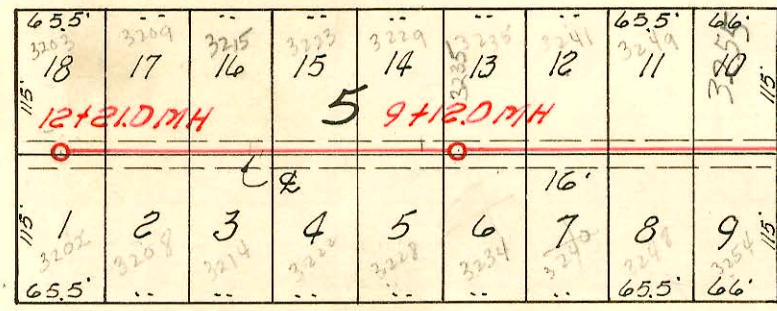 65.5' .. .. .. .. .. .. 65.5' 66'
3203 3209 3215 3223 3229 3235 3235 3241 3249 3255
18 17 16 15 14 13 12 11 10
115' 5 115'
12+21.0 MH 9+12.0 MH
℄ 16'
115' 1 2 3 4 5 6 7 8 9 115'
3202 3208 3214 3222 3228 3234 3240 3248 3254
65.5' .. .. .. .. .. .. 65.5' 66'